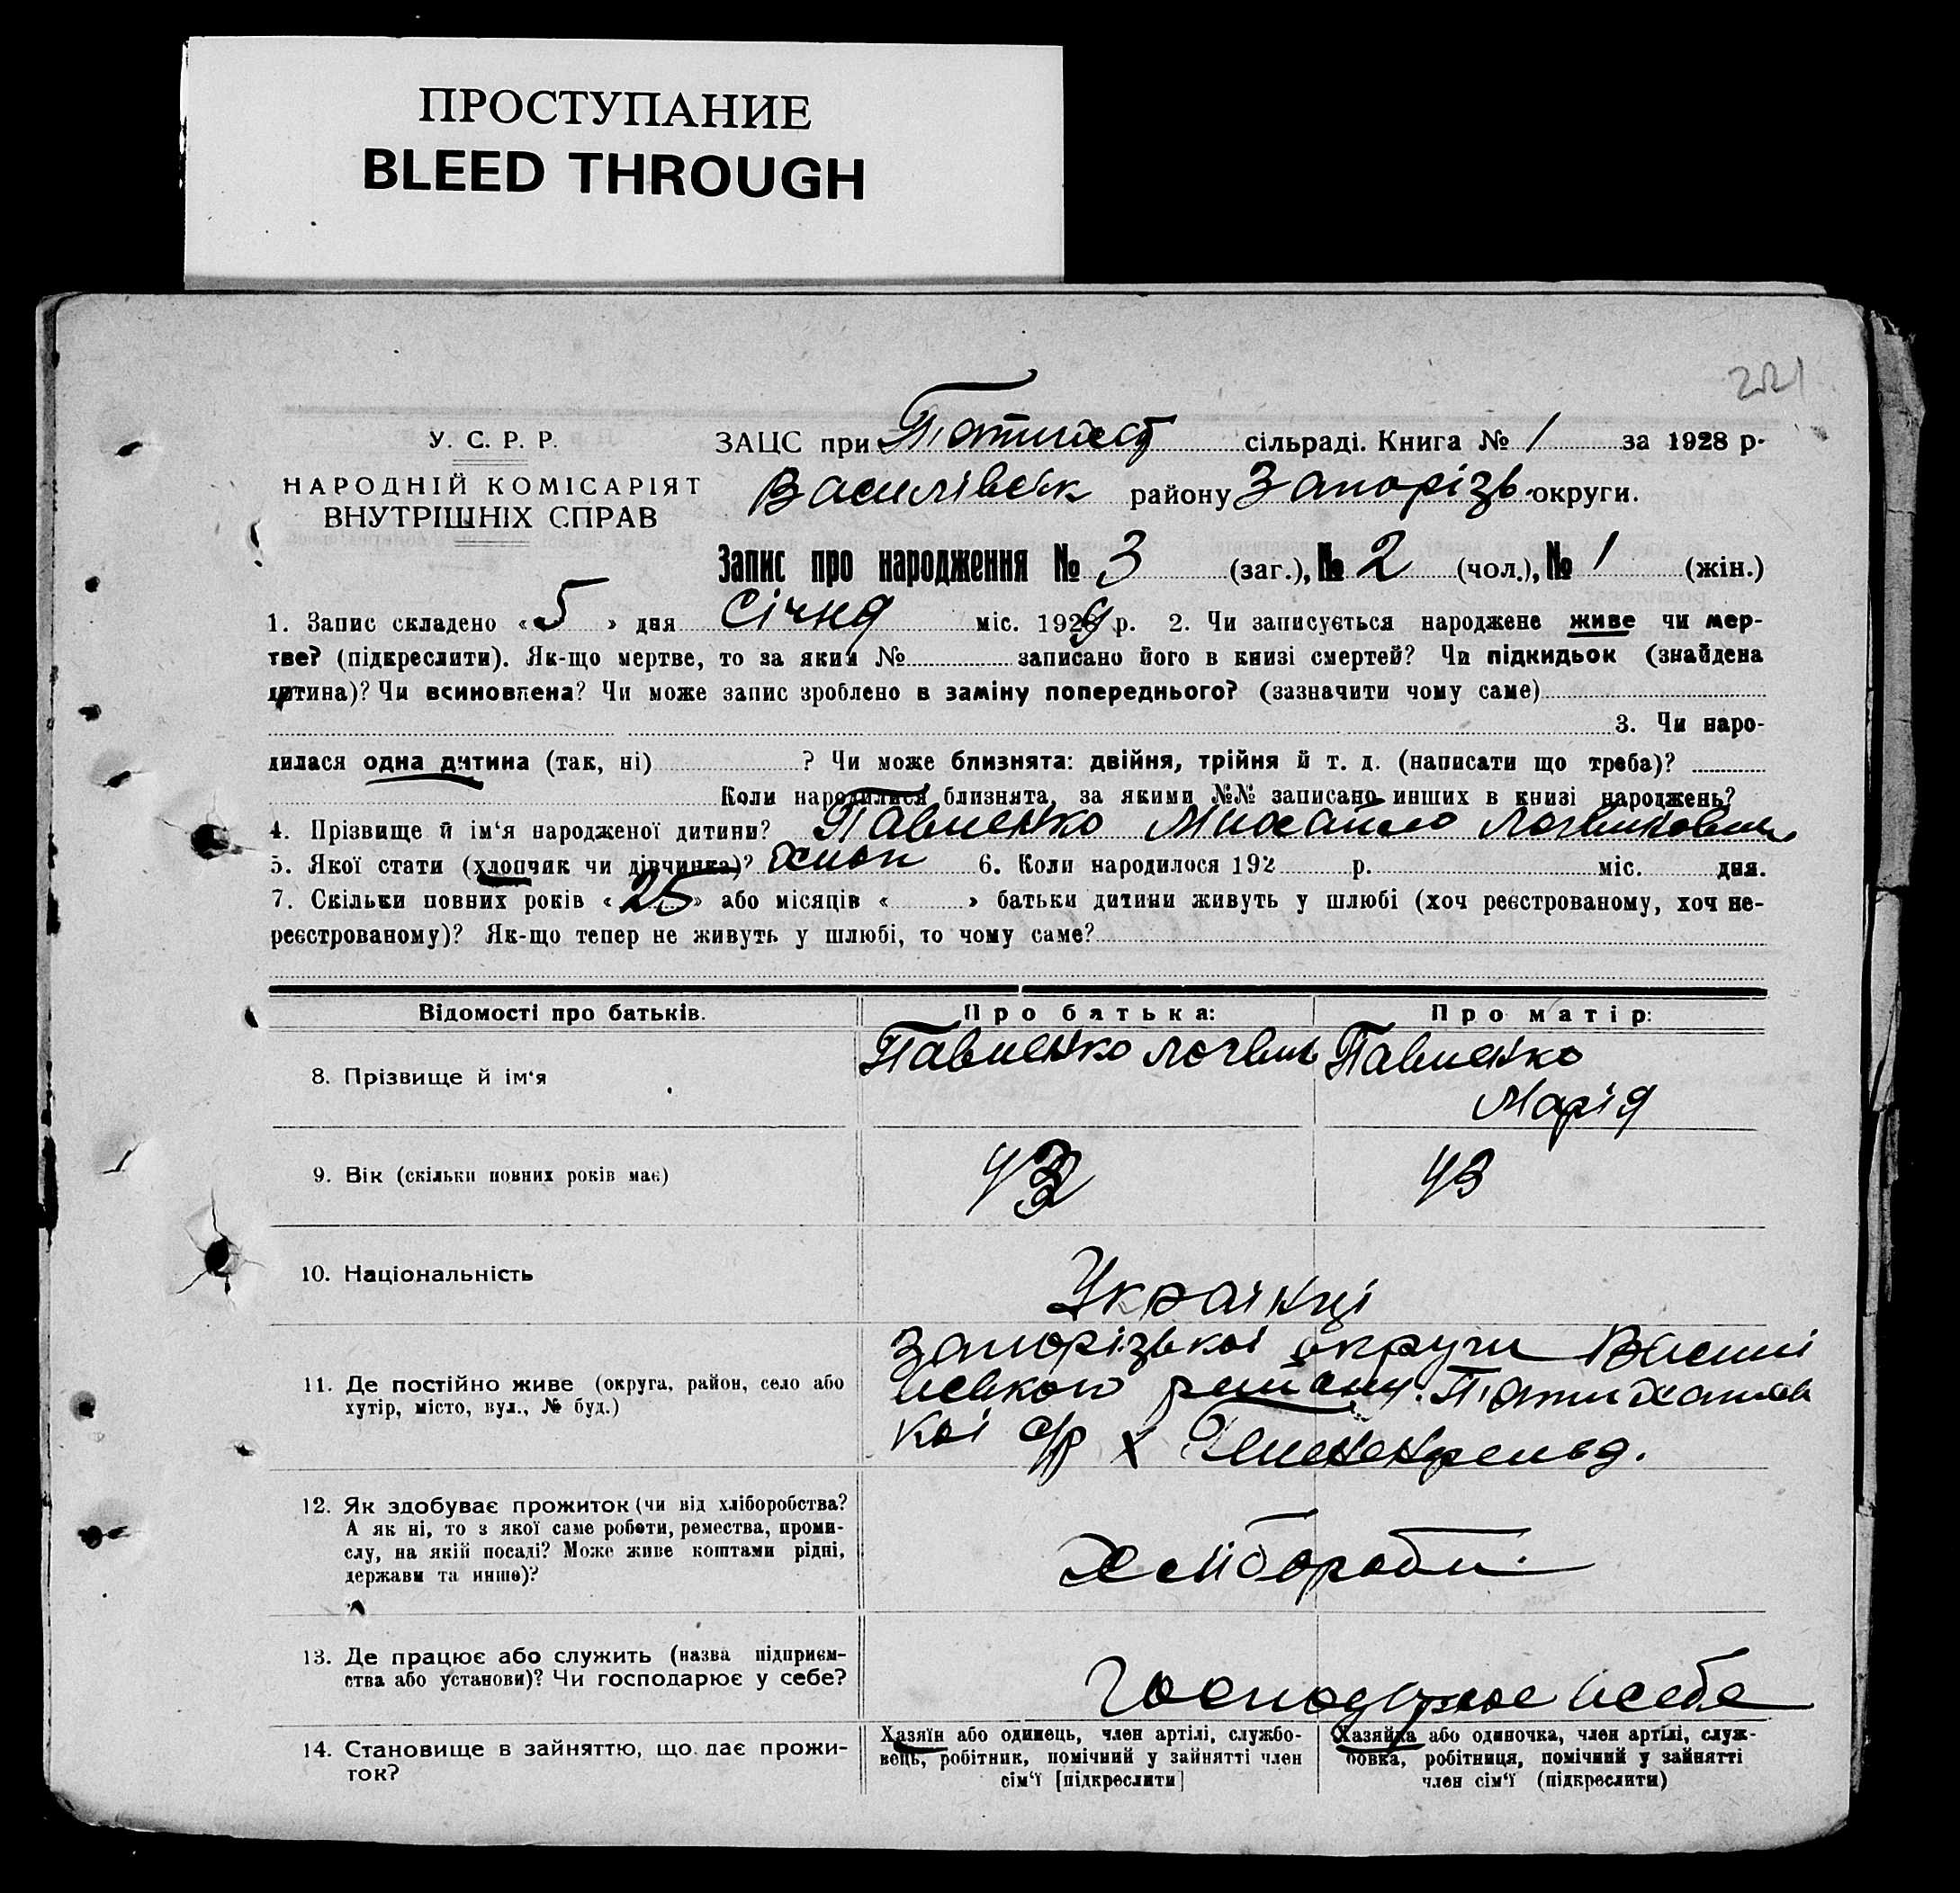 ПРОСТУПАНИЕ
BLEED THROUGH
221
У. С. Р. Р.
НАРОДНІЙ КОМІСАРІЯТ
ВНУТРІШНІХ СПРАВ
ЗАЦС при сільраді. Книга № 1 за 1928 р.
Василівськ району Запорізь округи.
Запис про народження № 3 (заг.), № 2 (чол.), № 1 (жін.)
1. Запис складено «5» дня Січня міс. 1929 р. 2. Чи записується народжене живе чи мер-
тве? (підкреслити). Як-що мертве, то за яким № записано його в книзі смертей? Чи підкидьок (знайдена
дитина)? Чи всиновлена? Чи може запис зроблено в заміну попереднього? (зазначити чому саме)
3. Чи наро-
дилася одна дитина (так, ні) ? Чи може близнята: двійня, трійня й т. д. (написати що треба)?
Коли народилися близнята, за якими №№ записано инших в книзі народжень?
4. Прізвище й ім‘я народженої дитини? Павленко Михайло Логвинович
5. Якої стати (хлопчик чи дівчинка)? хлоп 6. Коли народилося 192 р. міс. дня.
7. Скільки повних років «25» або місяців « » батьки дитини живуть у шлюбі (хоч реєстрованому, хоч не-
реєстрованому)? Як-що тепер не живуть у шлюбі, то чому саме?
Відомості про батьків. Про батька: Про матір:
8. Прізвище й ім‘я Павленко Логвин Павленко
Марія
9. Вік (скільки повних років має) 43
10. Національність Українці
11. Де постійно живе (округа, район, село або
хутір, місто, вул., № буд.)
Запорізької округи Васили
вського району Пятихатсь
кої с/р х
12. Як здобуває прожиток (чи від хліборобства?
А як ні, то з якої саме роботи, ремества, проми-
слу, на якій посаді? Може живе коштами рідні,
держави та инше)?
Хлібороби.
13. Де працює або служить (назва підприєм-
ства або установи)? Чи господарює у себе?
Господарює у себе
14. Становище в зайняттю, що дає прожи-
ток?
Хазяїн або одинець, член артілі, службо-
вець, робітник, помічний у зайнятті член
сім‘ї [підкреслити]
Хазяйка або одиночка, член артілі, служ-
бовка, робітниця, помічний у зайнятті
член сім‘ї (підкреслити)